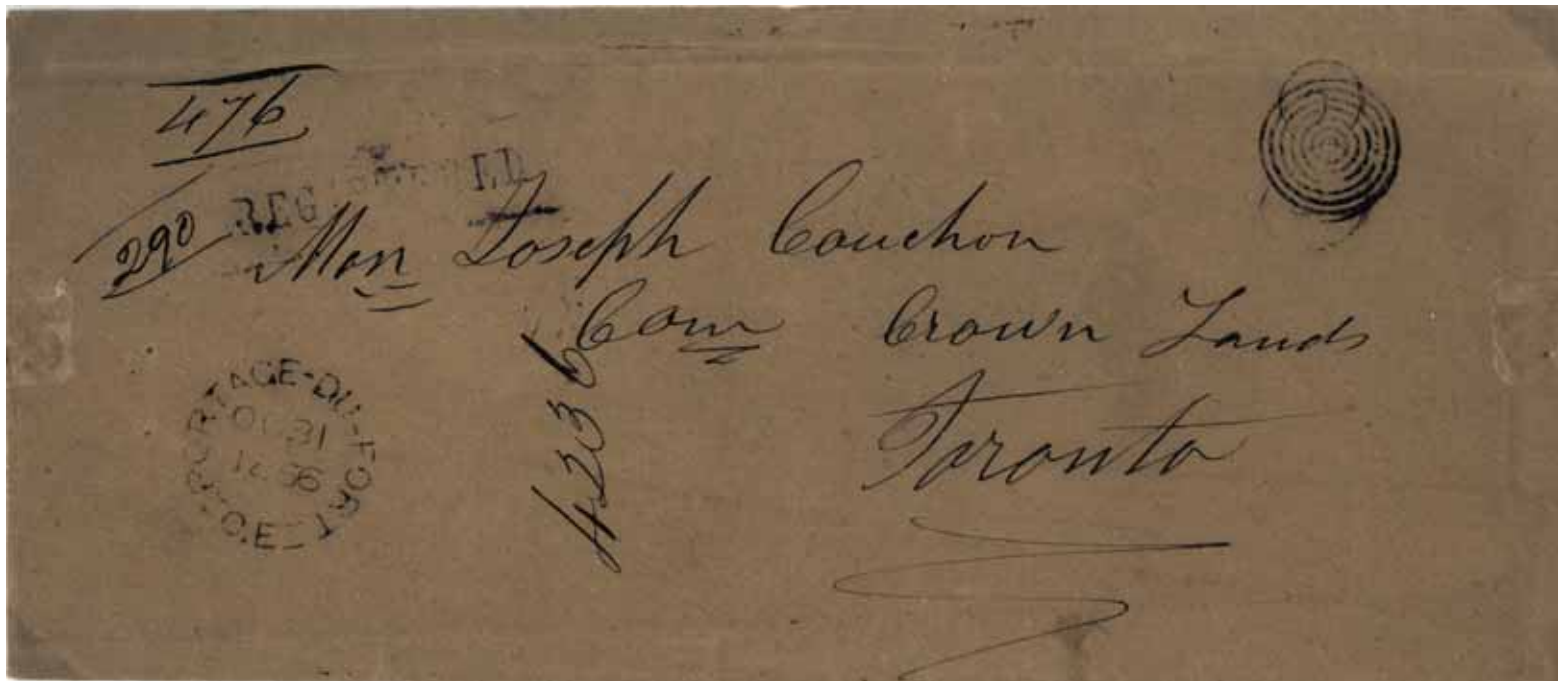 476
290
REGISTERED
Hon Joseph Couchon
Com Crown Lands
Toronto
4236
PORTAGE-DU-FORT
OC 31
1856
C.E